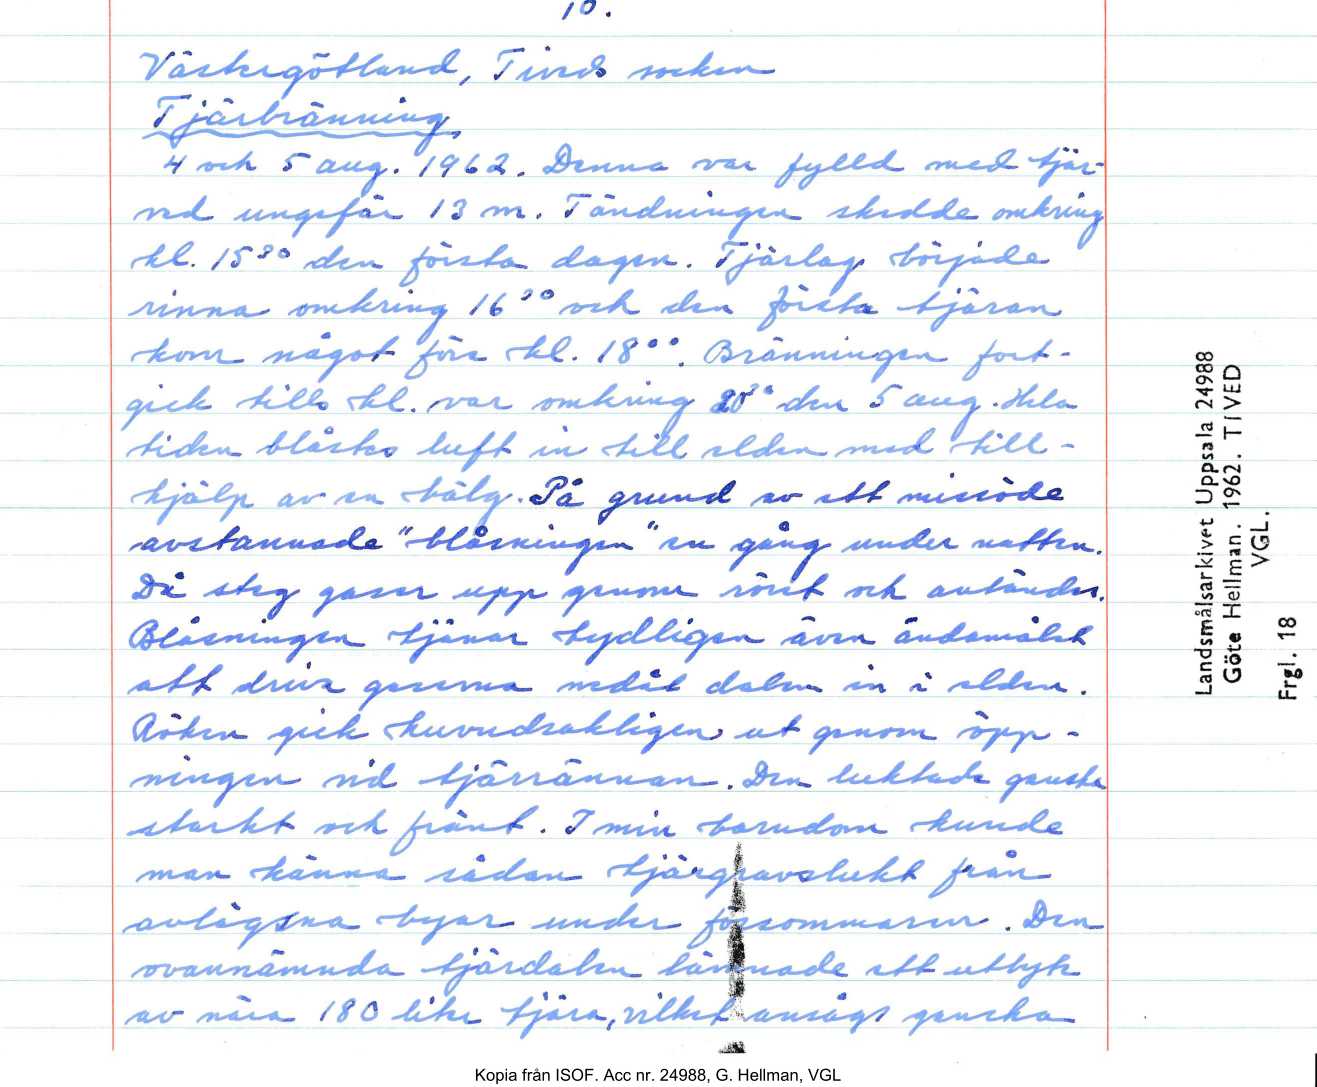 10.
Västergötland, Tiveds socken
Tjärbränning
4 och 5 aug. 1962. Denna var fylld med tjär-
ved ungefär 13 m. Tändningen skedde omkring
kl. 15³⁰ den första dagen. Tjärlag började
rinna omkring 16³⁰ och den första tjäran
kom något före kl. 18⁰⁰. Bränningen fort-
gick tills kl. var omkring 20³⁰ den 5 aug. Hela
tiden blåstes luft in till elden med till-
hjälp av en bälg. På grund av ett missöde
avstannade "blåsningen" en gång under natten.
Då steg gaser upp genom röret och antändes.
Blåsningen tjänar tydligen även ändamålet
att driva gaserna nedåt dalen in i elden.
Röken gick huvudsakligen ut genom öpp-
ningen vid tjärrännan. Den luktade ganska
starkt och fränt. I min barndom kunde
man känna sådan tjärgravslukt från
avlägsna byar under försommaren. Den
ovannämnda tjärdalen lämnade ett utbyte
av nära 180 liter tjära, vilket ansågs ganska
Landsmålsarkivet Uppsala 24988
Göte Hellman. 1962. TIVED
VGL.
Frgl. 18
Kopia från ISOF. Acc nr. 24988, G. Hellman, VGL